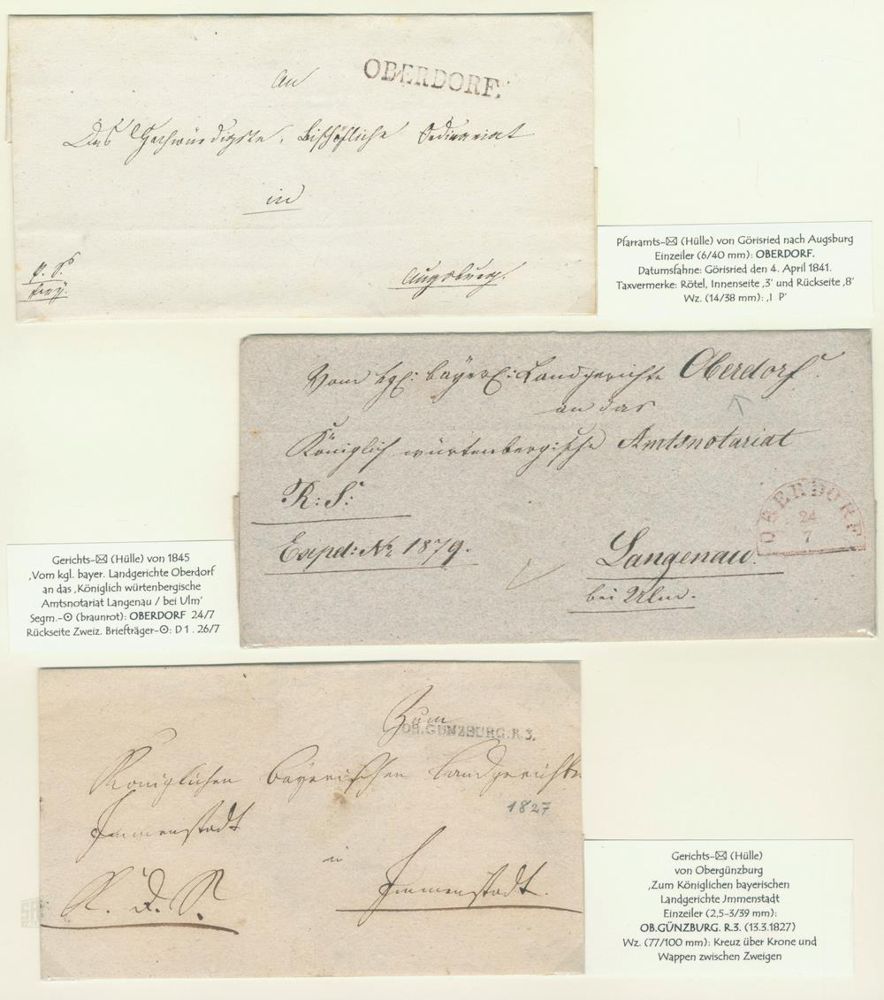 OBERDORF.
An
Das Hochwürdigste, Bischöfliche Ordinariat
in
Augsburg.
Pfarramts-✉ (Hülle) von Görisried nach Augsburg
Einzeiler (6/40 mm): OBERDORF.
Datumsfahne: Görisried den 4. April 1841.
Taxvermerke: Rötel, Innenseite ‚3‘ und Rückseite ‚8‘
Wz. (14/38 mm): ‚I P‘
Vom kgl: bayer: Landgerichte Oberdorf
an das
Königlich würtenbergische Amtsnotariat
R: S:
Expd: No 1879.
Langenau.
bei Ulm.
OBERDORF
24
7
Gerichts-✉ (Hülle) von 1845
‚Vom kgl. bayer. Landgerichte Oberdorf
an das ‚Königlich würtenbergische
Amtsnotariat Langenau / bei Ulm‘
Segm.-⊙ (braunrot): OBERDORF 24/7
Rückseite Zweiz. Briefträger-⊙: D 1 . 26/7
Zum
OB.GÜNZBURG.R.3.
Königlichen bayerischen Landgerichte
1827
Immenstadt
in
Immenstadt.
R. d. S.
Gerichts-✉ (Hülle)
von Obergünzburg
‚Zum Königlichen bayerischen
Landgerichte Jmmenstadt
Einzeiler (2,5-3/39 mm):
OB.GÜNZBURG. R.3. (13.3.1827)
Wz. (77/100 mm): Kreuz über Krone und
Wappen zwischen Zweigen